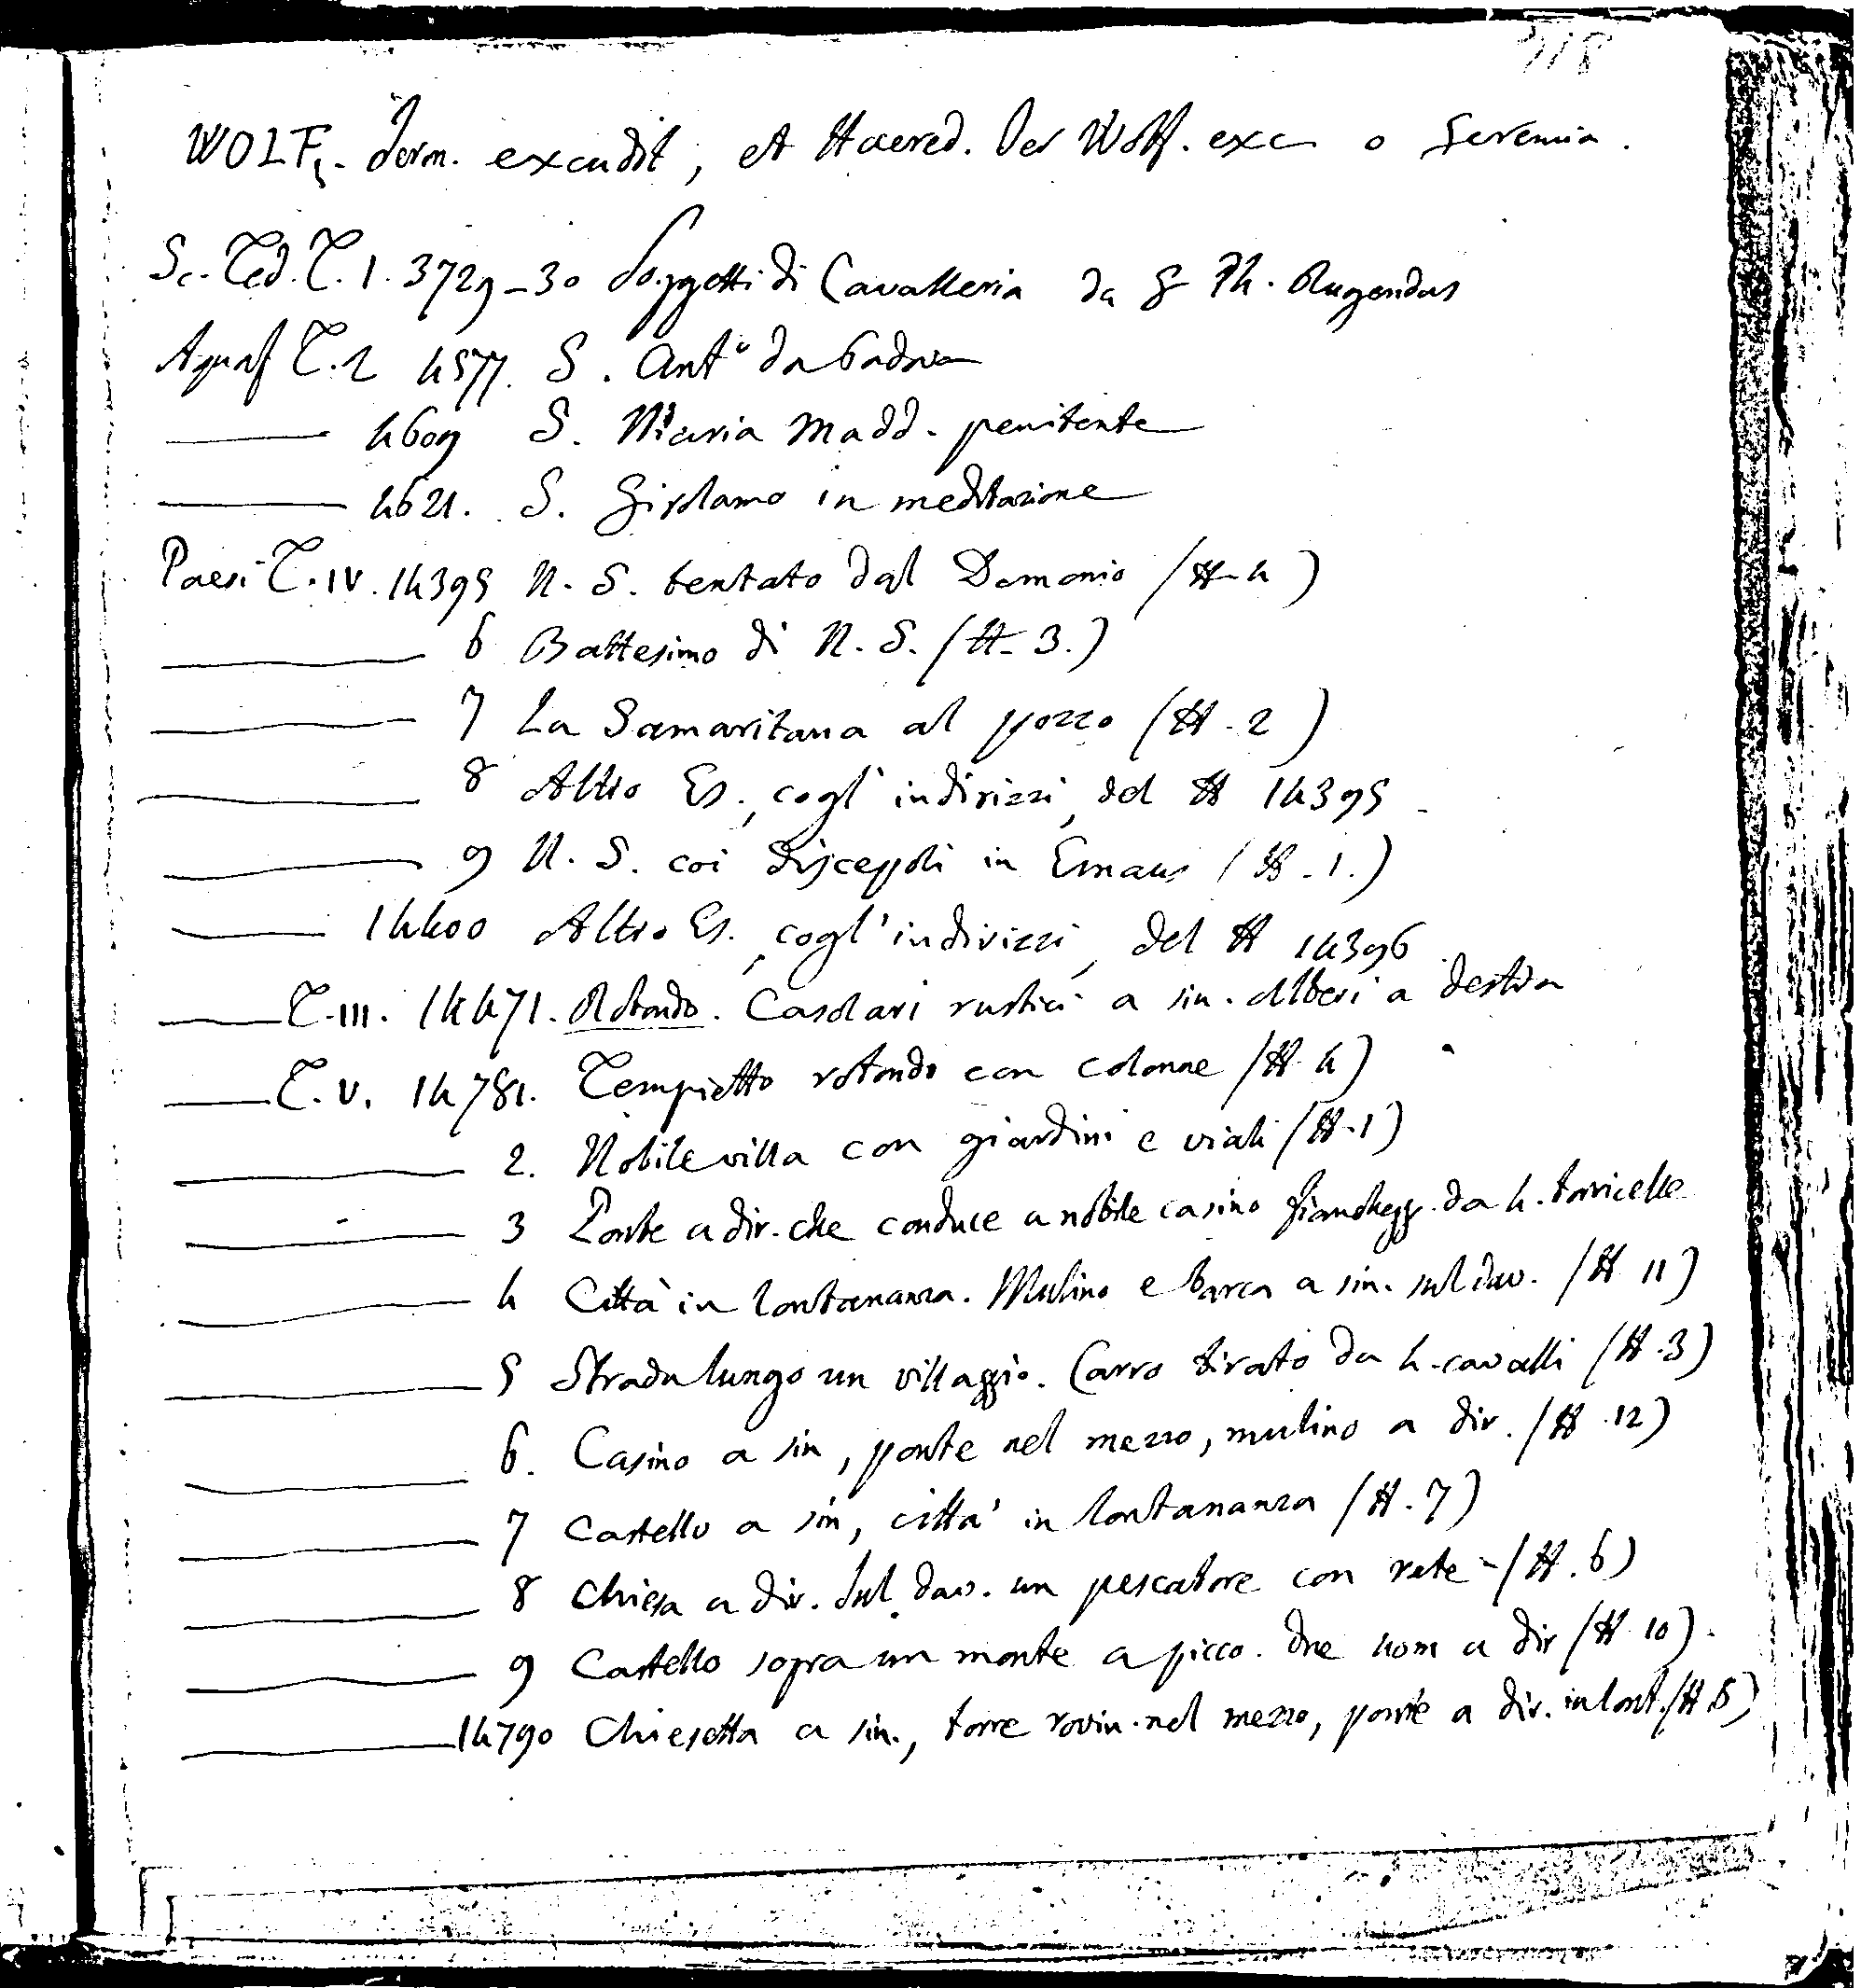 318
WOLF, - Jerem. excudit, et Haered. Jer Wolf. exc o Geremia.
Sc. Ted. T. 1. 3729-30 Soggetti di Cavalleria da G Ph. Rugendas
Aquaf T. 2 4577. S. Antº da Padova
4609 S. Maria Madd. penitente
4621. S. Girolamo in meditazione
Paesi T. IV. 14395 N. S. tentato dal Demonio (N. 4)
6 Battesimo di N. S. (N. 3.)
7 La Samaritana al pozzo (N. 2)
8 Altro Es., cogl' indirizzi, del N 14395
9 N. S. coi Discepoli in Emaus (N. 1.)
14400 Altro Es., cogl' indirizzi, del N 14396
T. III. 14471. Rotondo. Casolari rustici a sin. Alberi a destra
T. V. 14781. Tempietto rotondo con colonne (N. 4)
2. Nobile villa con giardini e viali (N. 1)
3 Ponte a dir. che conduce a nobile casino fianchegg. da 4. torricelle
4 Città in lontananza. Mulino e barca a sin. sul dav. (N 11)
5 Strada lungo un villaggio. Carro tirato da 4. cavalli (N. 3)
6. Casino a sin, ponte nel mezzo, mulino a dir. (N. 12)
7 Castello a sin, città in lontananza (N. 7)
8 Chiesa a dir. Sul dav. un pescatore con rete - (N. 6)
9 Castello sopra un monte a picco. Due uom a dir (N 10).
14790 Chiesetta a sin., torre rovin. nel mezzo, ponte a dir. in lont. (N. 5)